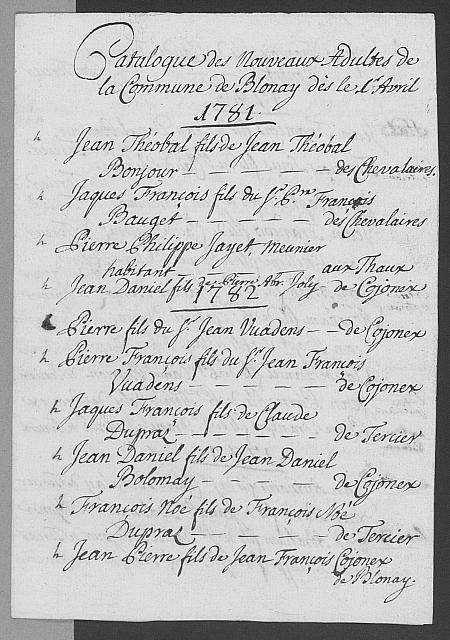 Catalogue des Nouveaux Adultes de
la Commune de Blonay dès le 1r Avril
1781.
h Jean Théobal fils de Jean Théobal
Bonjour - - - - - des Chevalaires.
h Jaques François fils du Sr. Pre François
Bauget - - - - - - des Chevalaires
h Pierre Philippe Jayet, Meunier
habitant aux Thaux
h Jean Daniel fils Pierre Abr. Joly de Cojonex
1782
Pierre fils du Sr. Jean Vuadens - - de Cojonex
h Pierre François fils du Sr. Jean François
Vuadens - - - - - de Cojonex
h Jaques François fils de Claude
Dupraz - - - - - de Tercier
h Jean Daniel fils de Jean Daniel
Bolomay - - - - - de Cojonex
h François Noé fils de François Noé
Dupraz - - - - - de Tercier
h Jean Pierre fils de Jean François Cojonex
de Blonay.